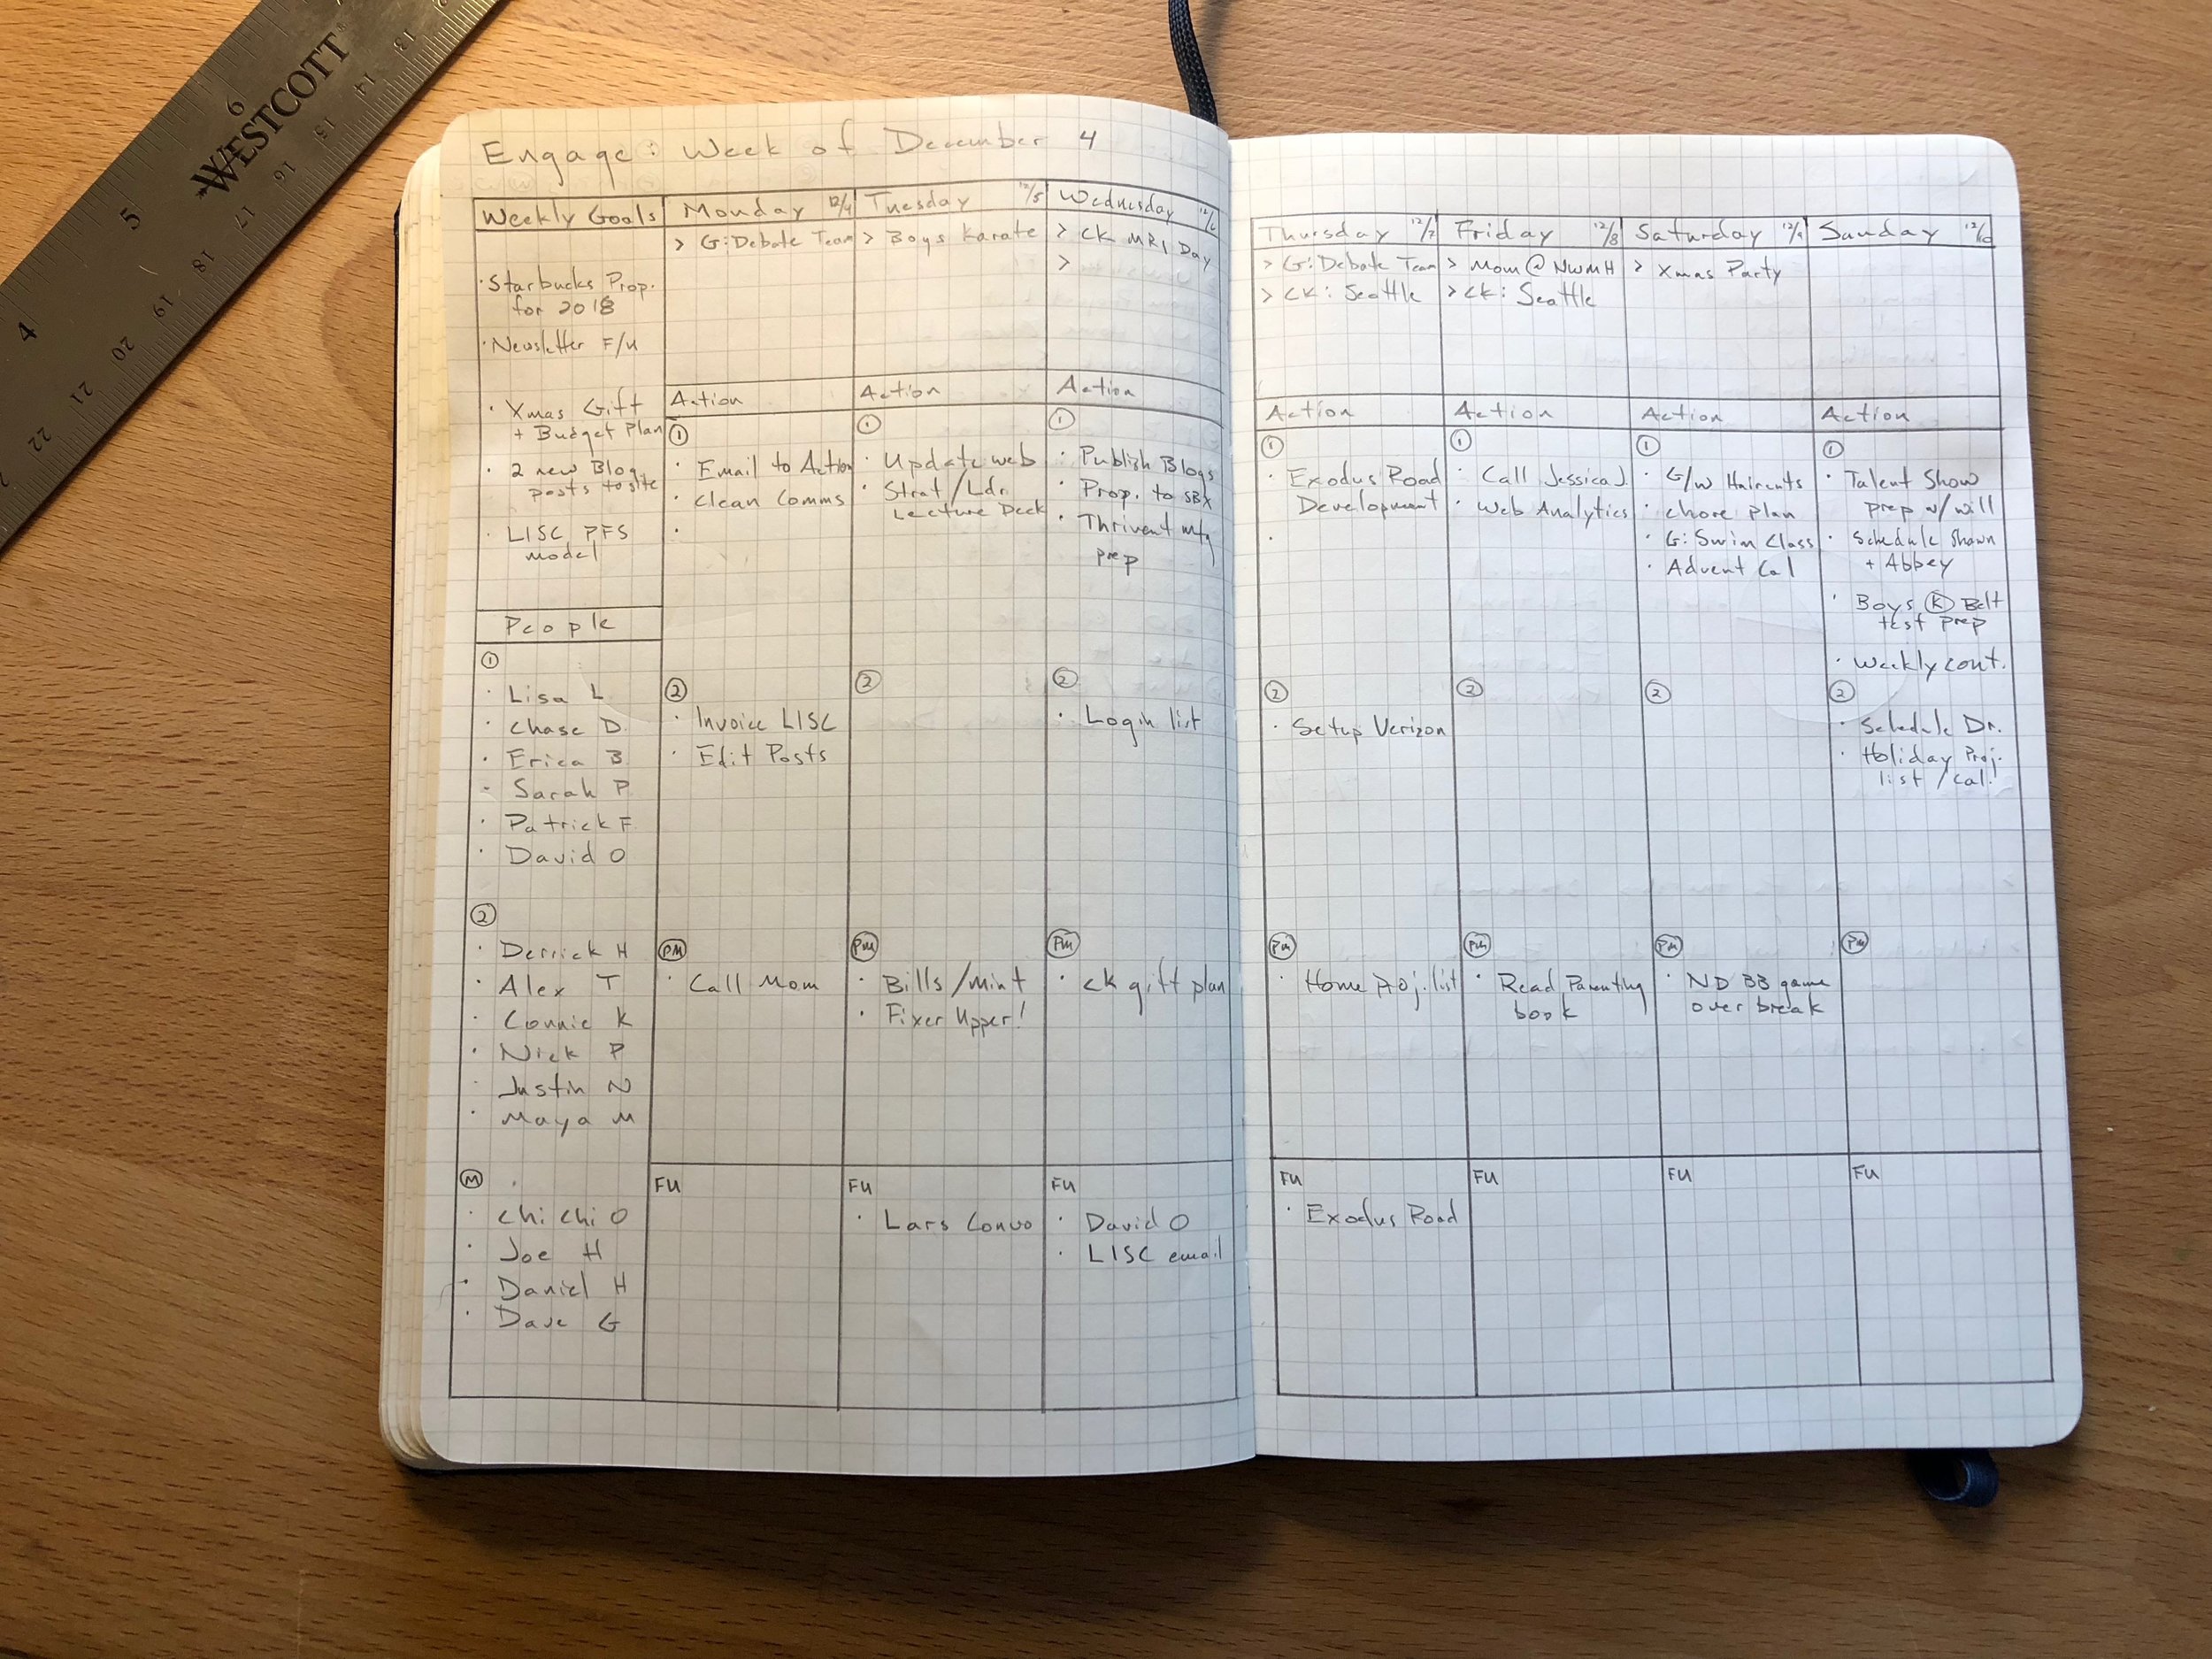 WESTCOTT
4
5
6
13
14
15
16
17
18
19
20
21
22
Engage: Week of December 4
Weekly Goals
· Starbucks Prop.
for 2018
· Newsletter F/U
· Xmas Gift
+ Budget Plan
· 2 new Blog
posts to site
· LISC PFS
model
People
①
· Lisa L
· Chase D.
· Erica B
· Sarah P
· Patrick F
· David O
②
· Derrick H
· Alex T
· Connie K
· Nick P
· Justin N
· Maya M
Ⓜ
· Chi Chi O
· Joe H
· Daniel H
· Dave G
Monday 12/4
> G: Debate Team
Action
①
· Email to Action
· Clean Comms
·
②
· Invoice LISC
· Edit Posts
PM
· Call Mom
FU
Tuesday 12/5
> Boys Karate
Action
①
· Update web
· Strat/Ldr.
Lecture Deck
②
PM
· Bills/Mint
· Fixer Upper!
FU
· Lars Convo
Wednesday 12/6
> CK MRI Day
>
Action
①
· Publish Blogs
· Prop. to SBX
· Thrivent mtg
prep
②
· Login list
PM
· CK gift plan
FU
· David O
· LISC email
Thursday 12/7
> G: Debate Team
> CK: Seattle
Action
①
· Exodus Road
Development
·
②
· Setup Verizon
PM
· Home Proj. list
FU
· Exodus Road
Friday 12/8
> Mom @ NWMH
> CK: Seattle
Action
①
· Call Jessica J.
· Web Analytics
②
PM
· Read Parenting
book
FU
Saturday 12/9
> Xmas Party
Action
①
· G/W Haircuts
· chore plan
· G: Swim Class
· Advent Cal
②
PM
· ND BB game
over break
FU
Sunday 12/10
Action
①
· Talent Show
prep w/ will
· Schedule Shawn
+ Abbey
· Boys Ⓚ Belt
test prep
· Weekly cont.
②
· Schedule Dr.
· Holiday Proj.
list/cal!
PM
FU